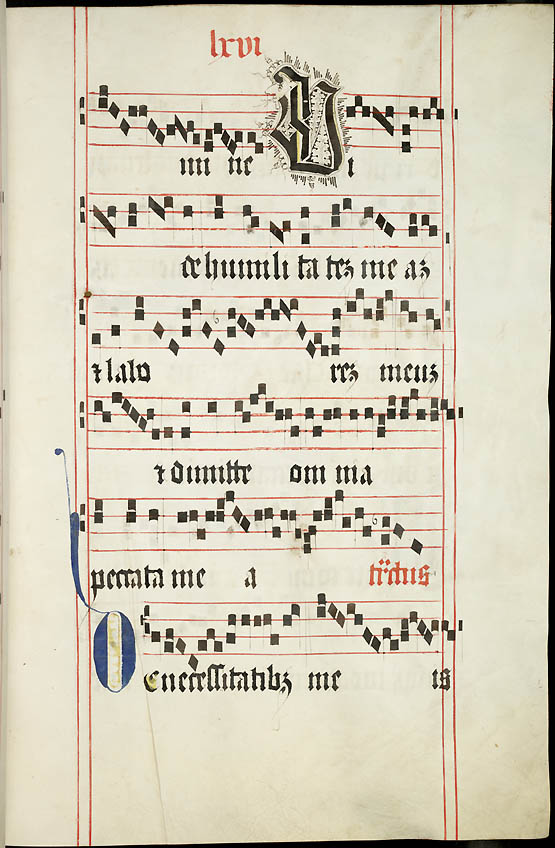 lxvi
mi ne V i
de humili ta tez me az
⁊ labo rez meuz
⁊ dimitte om nia
peccata me a tr̄ctus
De necessitatibz me is